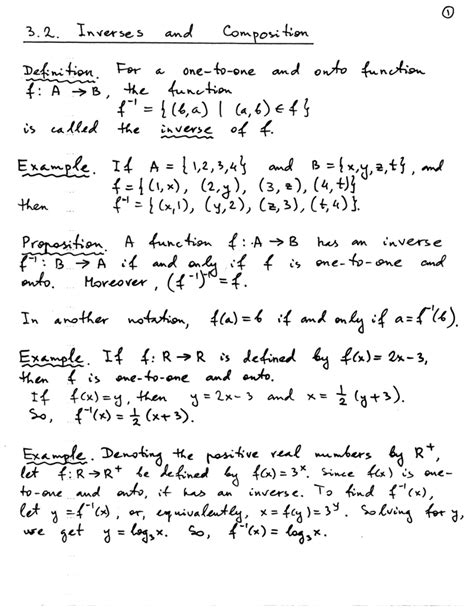 ①
3.2. Inverses and Composition
Definition. For a one-to-one and onto function
f: A → B, the function
f⁻¹ = {(b,a) | (a,b) ∈ f}
is called the inverse of f.
Example. If A = {1,2,3,4} and B = {x,y,z,t}, and
f = {(1,x), (2,y), (3,z), (4,t)}
then f⁻¹ = {(x,1), (y,2), (z,3), (t,4)}.
Proposition. A function f: A → B has an inverse
f⁻¹: B → A if and only if f is one-to-one and
onto. Moreover, (f⁻¹)⁻¹ = f.
In another notation, f(a)=b if and only if a=f⁻¹(b).
Example. If f: R → R is defined by f(x) = 2x-3,
then f is one-to-one and onto.
If f(x) = y, then y = 2x-3 and x = ½ (y+3).
So, f⁻¹(x) = ½ (x+3).
Example. Denoting the positive real numbers by R⁺,
let f: R → R⁺ be defined by f(x) = 3ˣ. Since f(x) is one-
to-one and onto, it has an inverse. To find f⁻¹(x),
let y = f⁻¹(x), or, equivalently, x = f(y) = 3ʸ. Solving for y,
we get y = log₃x. So, f⁻¹(x) = log₃x.